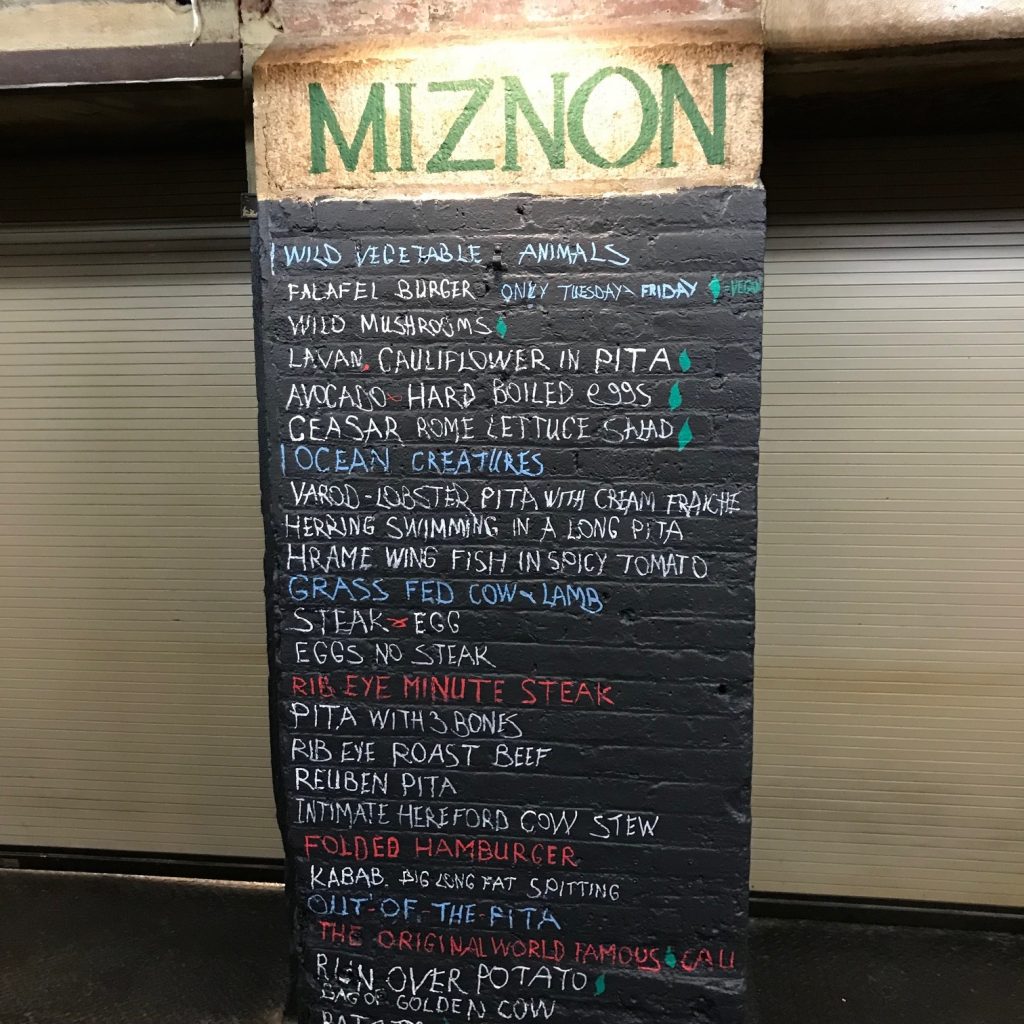 MIZNON
WILD VEGETABLE & ANIMALS
FALAFEL BURGER ONLY TUESDAY - FRIDAY = VEGO
WILD MUSHROOMS
LAVAN. CAULIFLOWER IN PITA
AVOCADO - HARD BOILED eggs
CEASAR ROME LETTUCE SALAD
OCEAN CREATURES
VAROD - LOBSTER PITA WITH CREAM FRAICHE
HERRING SWIMMING IN A LONG PITA
HRAME WING FISH IN SPICY TOMATO
GRASS FED COW & LAMB
STEAK & EGG
EGGS NO STEAK
RIB EYE MINUTE STEAK
PITA WITH 3 BONES
RIB EYE ROAST BEEF
REUBEN PITA
INTIMATE HEREFORD COW STEW
FOLDED HAMBURGER
KABAB. BIG LONG FAT SPITTING
OUT-OF-THE-PITA
THE ORIGINAL WORLD FAMOUS CALI
RUN OVER POTATO
BAG OF GOLDEN COW